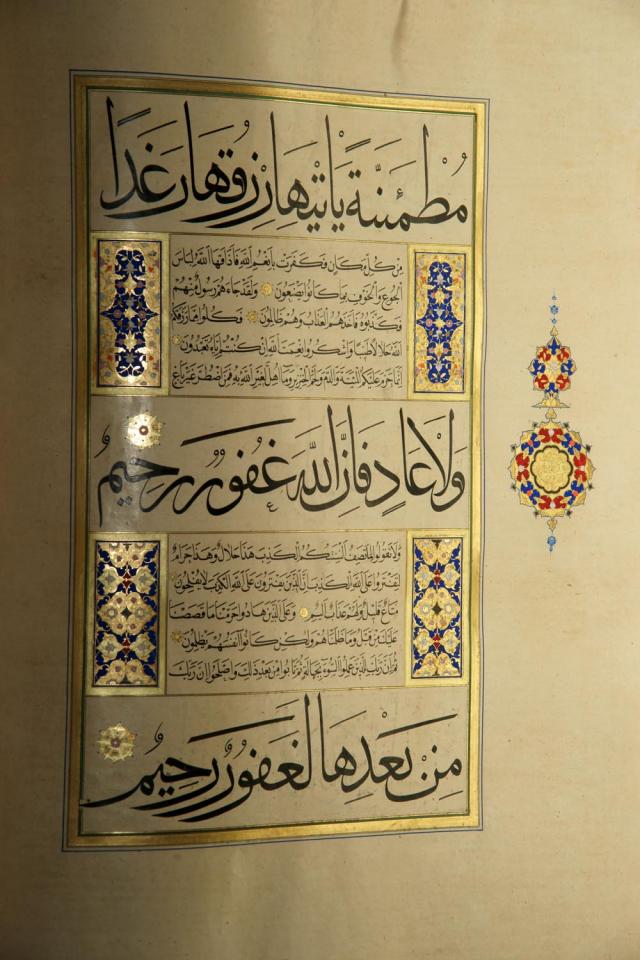 مطمئنة ياتيها رزقها رغدا
من كل مكان فكفرت بانعم الله فاذاقها الله لباس
الجوع والخوف بما كانوا يصنعون ولقد جاءهم رسول منهم
فكذبوه فاخذهم العذاب وهم ظالمون فكلوا مما رزقكم
الله حلالا طيبا واشكروا نعمت الله ان كنتم اياه تعبدون
انما حرم عليكم الميتة والدم ولحم الخنزير وما اهل لغير الله به فمن اضطر غير باغ
ولا عاد فان الله غفور رحيم
ولا تقولوا لما تصف السنتكم الكذب هذا حلال وهذا حرام
لتفتروا على الله الكذب ان الذين يفترون على الله الكذب لا يفلحون
متاع قليل ولهم عذاب اليم وعلى الذين هادوا حرمنا ما قصصنا
عليك من قبل وما ظلمناهم ولكن كانوا انفسهم يظلمون
ثم ان ربك للذين عملوا السوء بجهالة ثم تابوا من بعد ذلك واصلحوا ان ربك
من بعدها لغفور رحيم